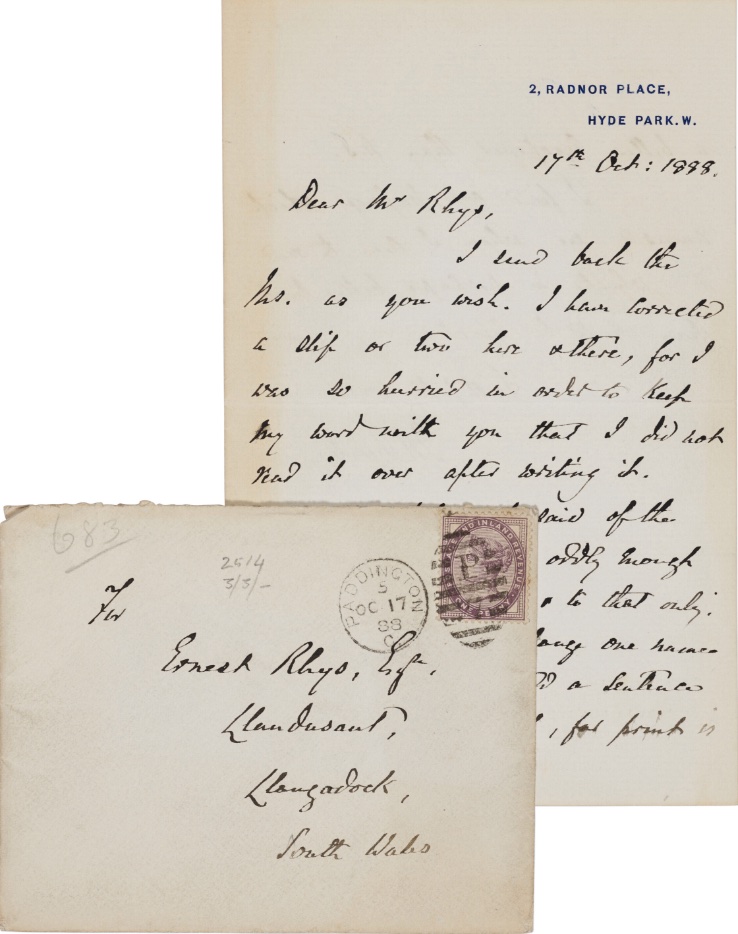 2, RADNOR PLACE,
HYDE PARK. W.
17th Oct: 1888.
Dear Mr Rhys,
I send back the
Ms. as you wish. I have corrected
a slip or two here & there, for I
was so hurried in order to keep
my word with you that I did not
read it over after writing it.
said of the
oddly enough
to that only.
one name
a sentence
, for print is
683
2514
3/3/-
For
Ernest Rhys, Esqre,
Llandusant,
Llangadock,
South Wales
PADDINGTON
5
OC 17
88
C
POSTAGE AND INLAND REVENUE
ONE PENNY